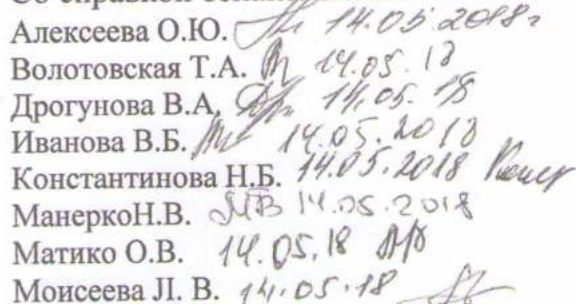 Алексеева О.Ю. 14.05.2018г
Волотовская Т.А. 14.05.18
Дрогунова В.А. 14.05.18
Иванова В.Б. 14.05.2018
Константинова Н.Б. 14.05.2018
МанеркоН.В. 14.05.2018
Матико О.В. 14.05.18
Моисеева Л. В. 14.05.18